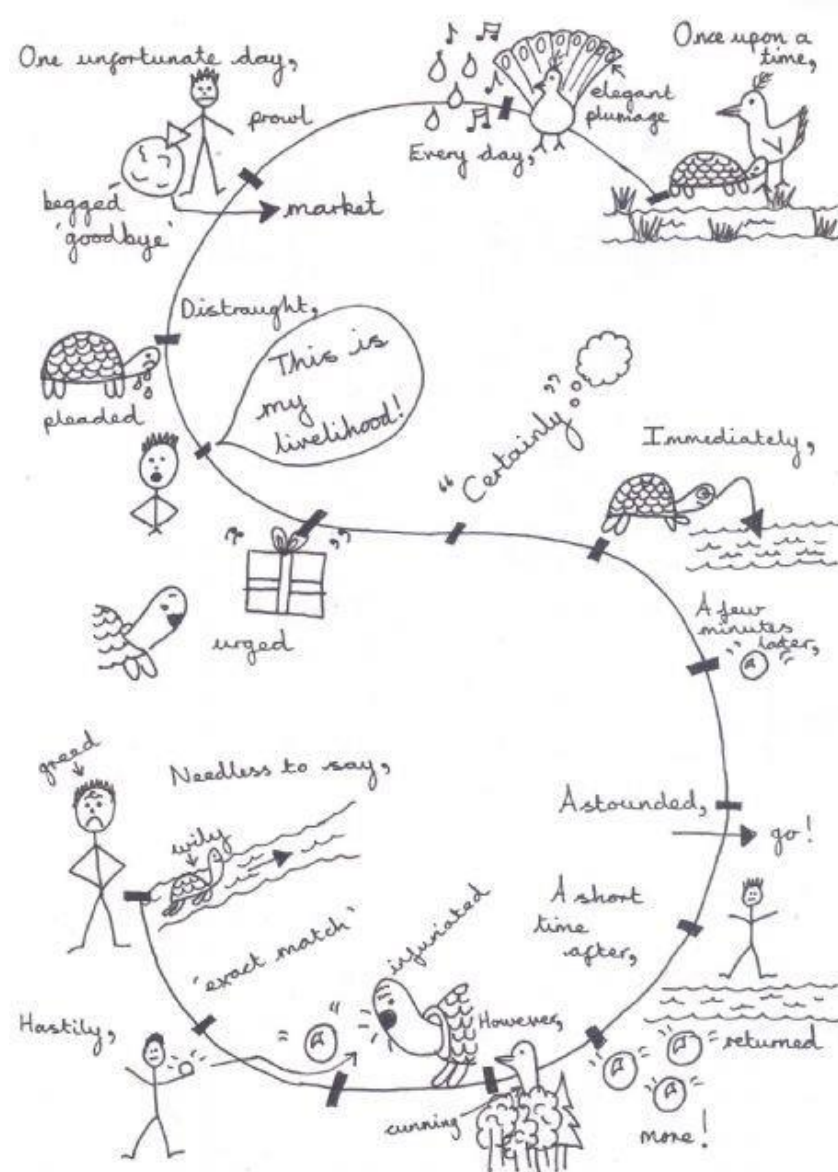 Once upon a
time,
elegant
plumage
Every day,
One unfortunate day,
prowl
begged
'goodbye'
market
Distraught,
pleaded
This is
my
livelihood!
urged
"Certainly"
Immediately,
A few
minutes
later,
Astounded,
go!
A short
time
after,
returned
more!
However,
cunning
infuriated
'exact match'
Hastily,
Needless to say,
wily
greed